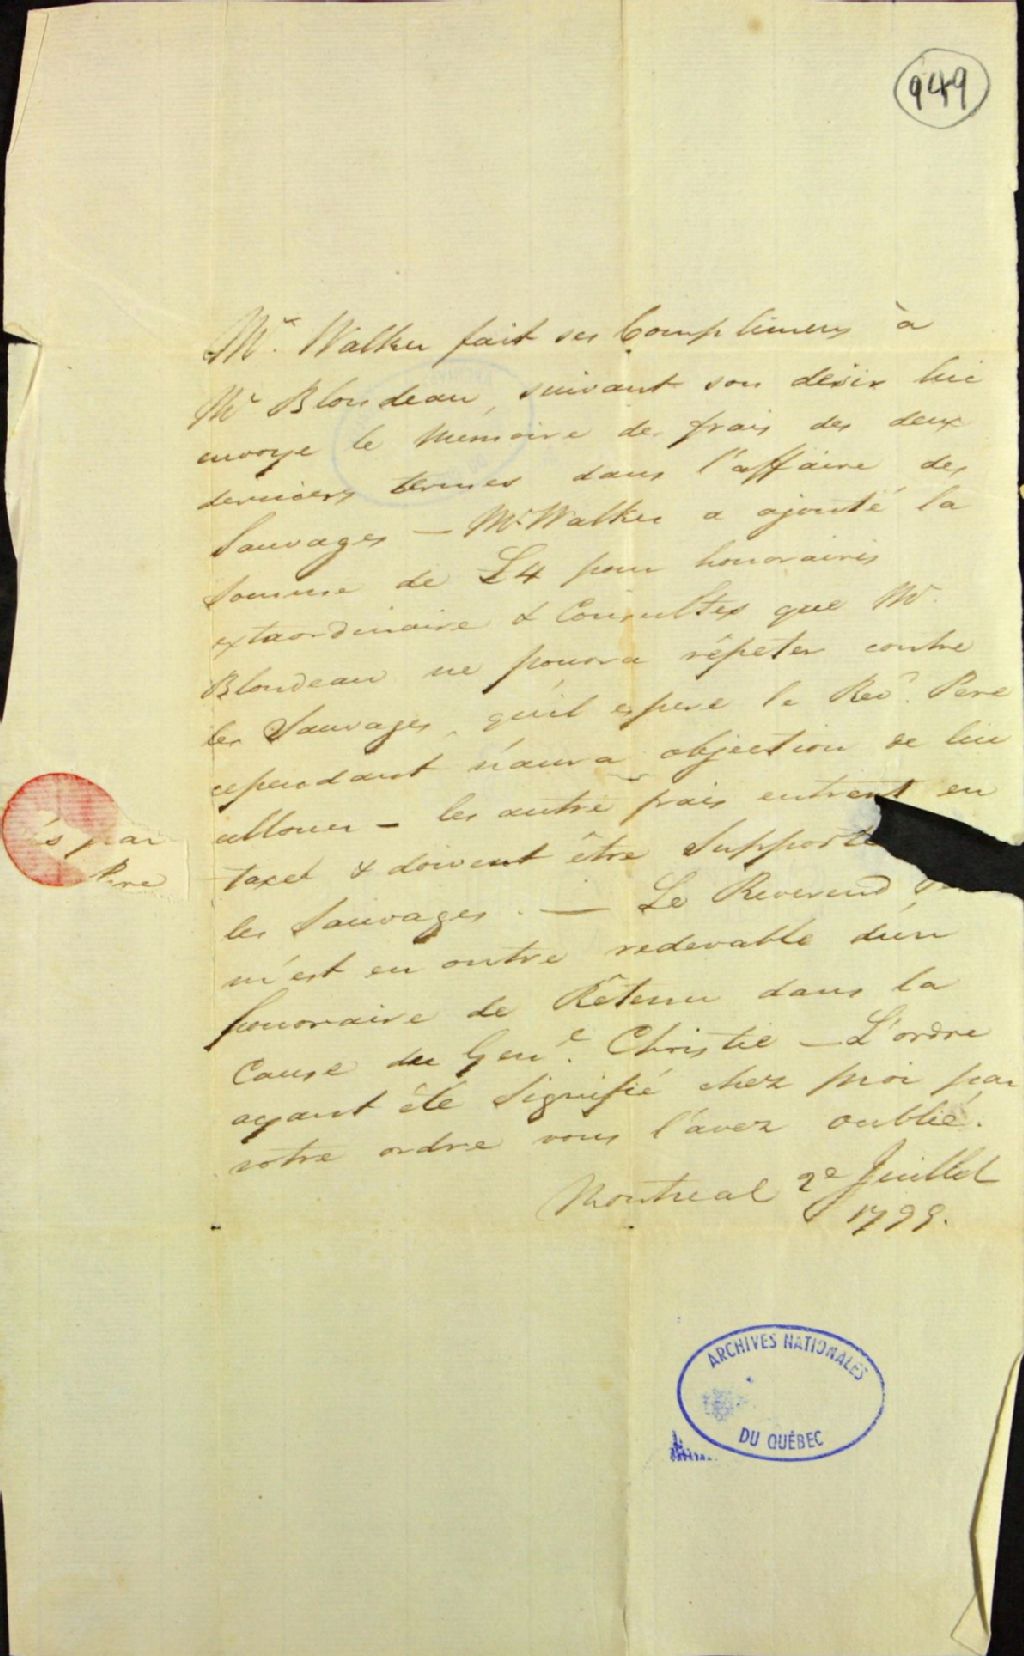 949
Mr. Walker fait ses Complimens à
Mr Blondeau, suivant son désir lui
envoye le Memoire des frais des deux
derniers termes dans l'affaire des
Sauvages — Mr. Walker a ajouté la
Somme de £4 pour honoraires
extaordinaire & Consultes que Mr.
Blondeau ne pourra répeter contre
les Sauvages, qu'il espere le Revd. Pere
cependant n'aura objection de lui
allouer — les autre frais entrent en
taxet & doivent être Supporté
és par
les Sauvages. — Le Reverend Pe
Pere
m'est en outre redevable d'un
honoraire de Rêtenu dans la
Cause du Genl. Christie — L'ordre
ayant été Signifié chez moi par
votre ordre vous l'avez oublié.
Montreal 2e Juillet
1799.
ARCHIVES NATIONALES
DU QUÉBEC